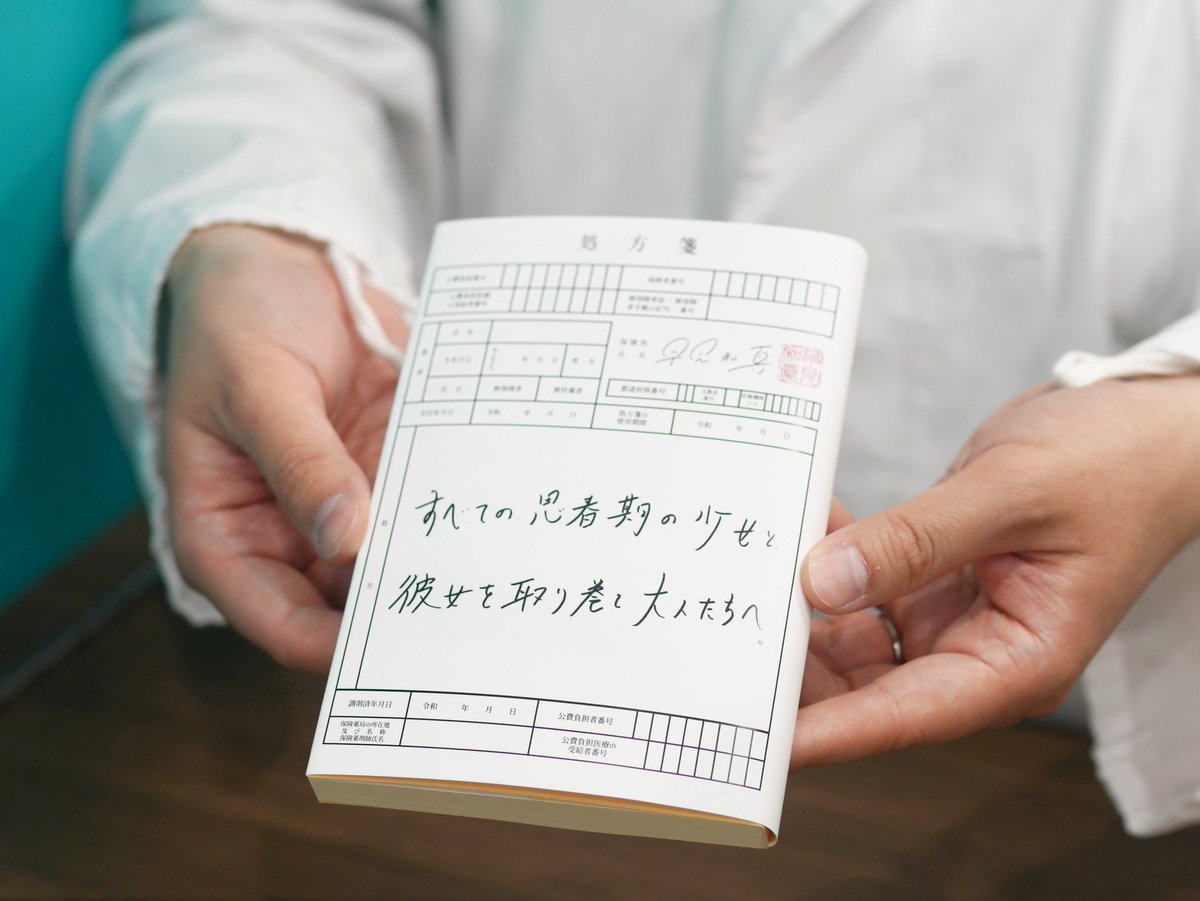 処方箋
公費負担者番号
保険者番号
公費負担医療
の受給者番号
被保険者証・被保険
者手帳の記号・番号
患者
氏名
生年月日
年 月 日
男・女
区分
被保険者
被扶養者
保険医
氏名
都道府県番号
点数表
番号
医療機関
コード
交付年月日
令和 年 月 日
処方箋の
使用期間
令和 年 月 日
処方
すべての思春期の少女と、
彼女を取り巻く大人たちへ。
調剤済年月日
令和 年 月 日
公費負担者番号
保険薬局の所在地
及び名称
保険薬剤師氏名
公費負担医療の
受給者番号